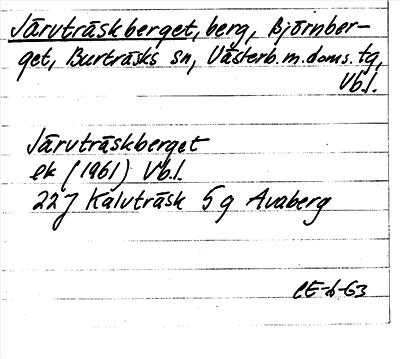 Järvträskberget, berg, Björnber-
get, Burträsks sn, Västerb. m. doms. tg,
Vb.l.
Järvträskberget
ek (1961) Vb.l.
22J Kalvträsk 5g Avaberg
CE-6-63